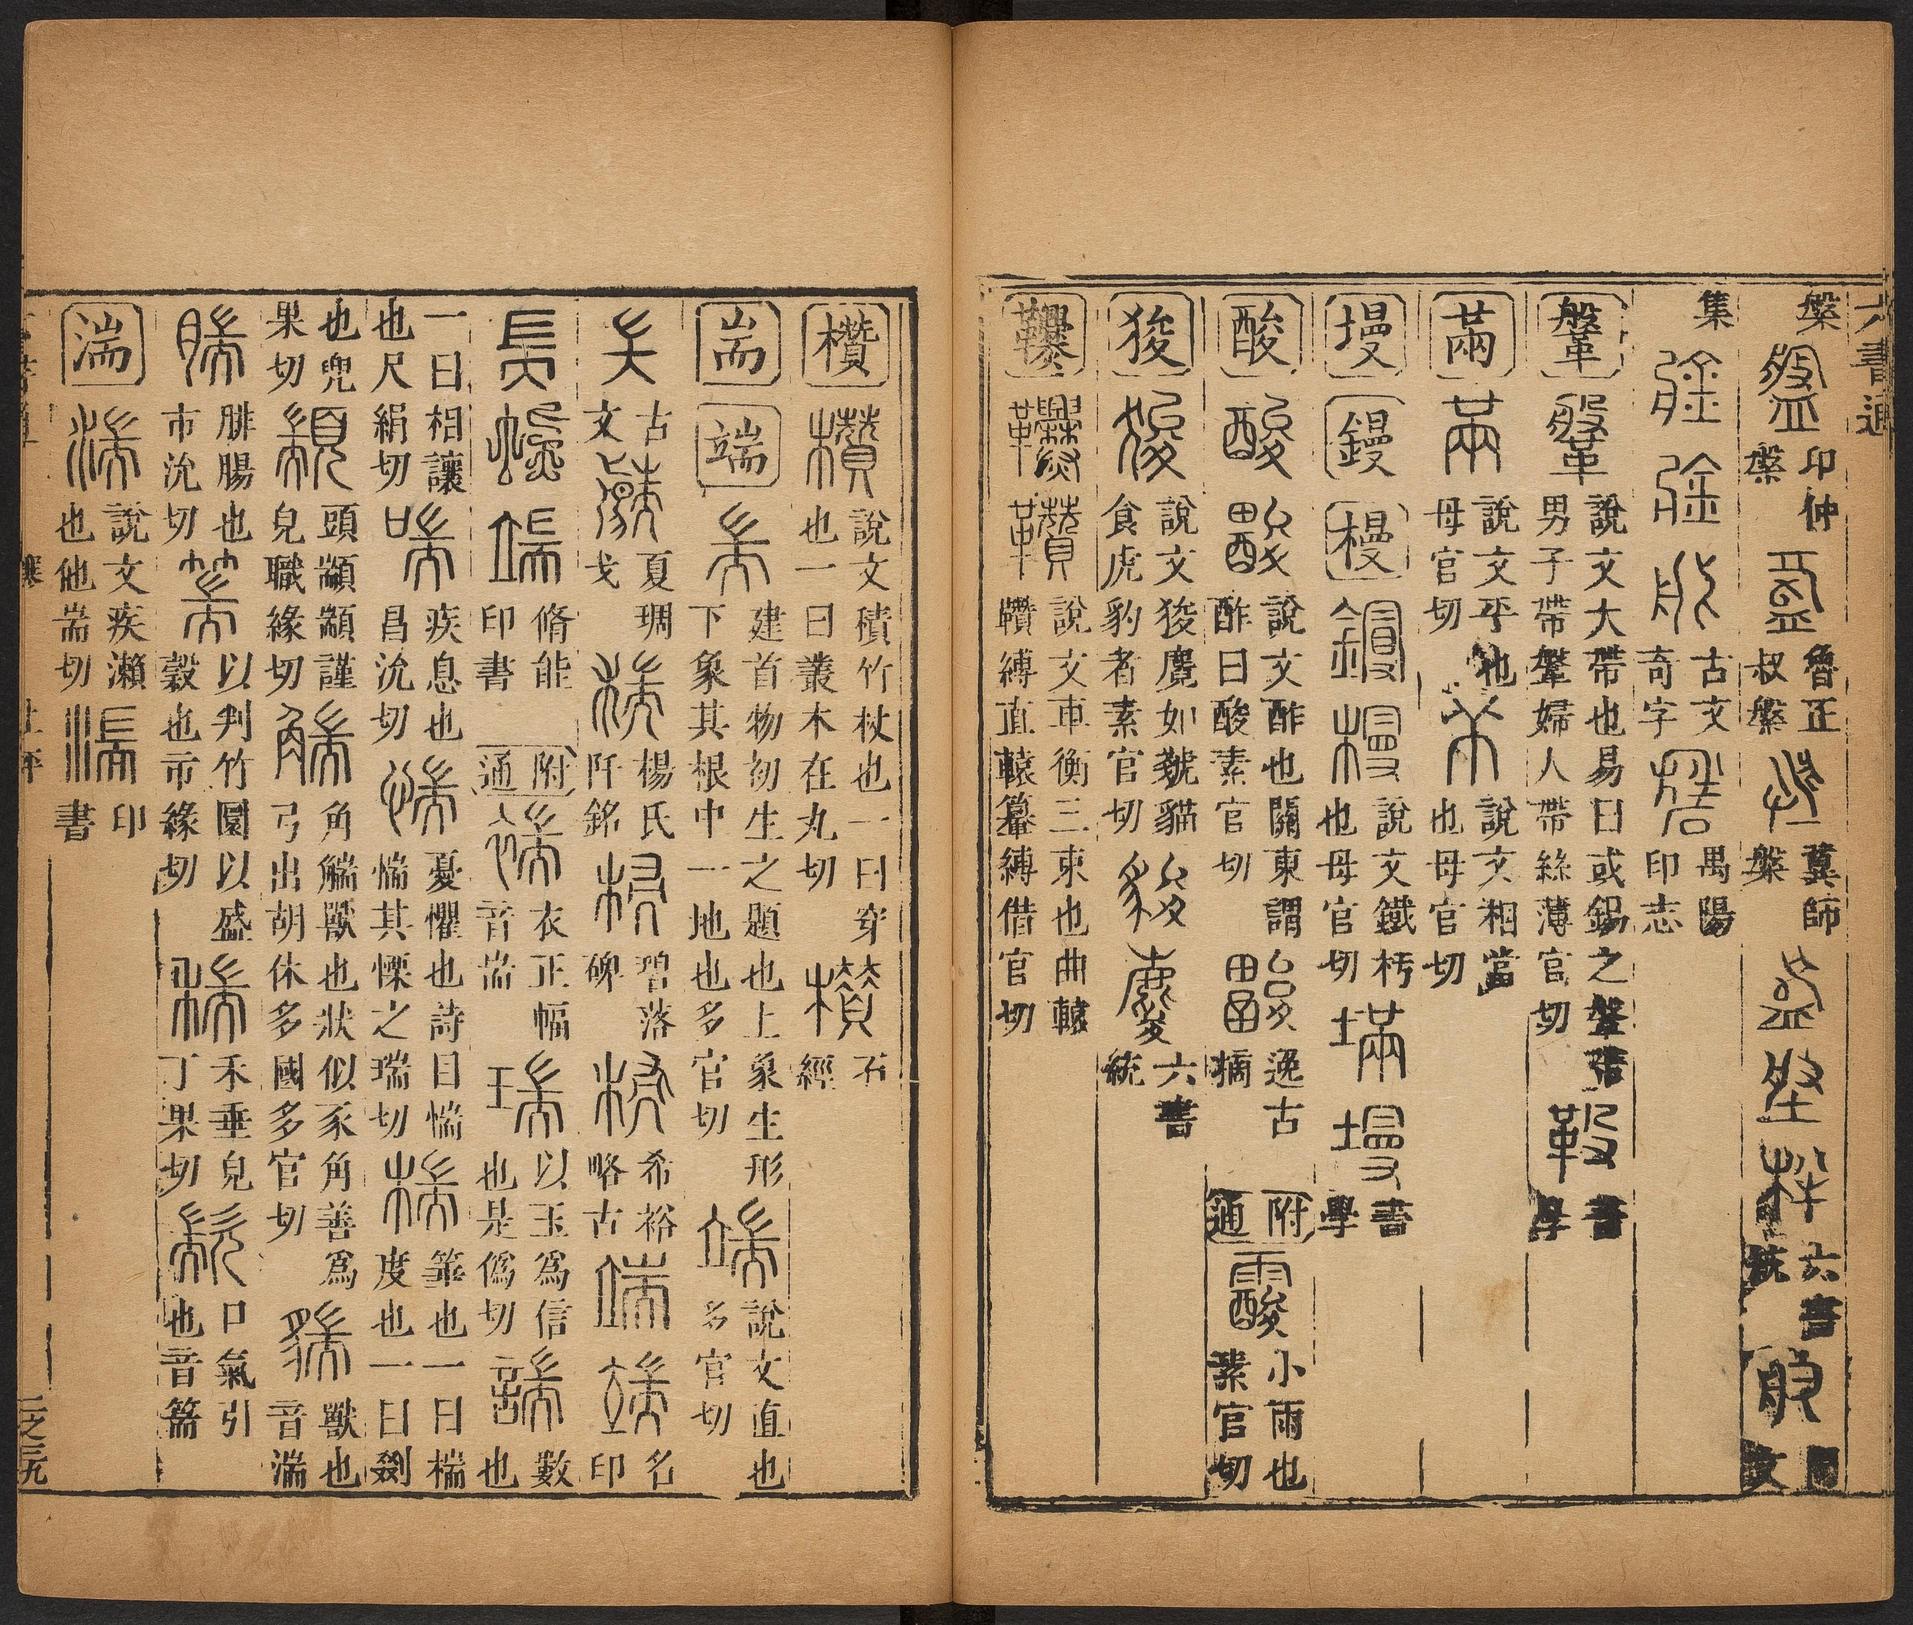 六書通
槃 印 仲槃 魯正叔槃 冀師槃 六書統 文
集 古文奇字 禺陽印志
鞶 說文大帶也易曰或錫之鞶帶男子帶鞶婦人帶絲薄官切 書學
㒼 說文平也母官切 說文相當也母官切
墁 鏝 槾 說文鐵杇也母官切 書學
酸 說文酢也關東謂酢曰酸素官切 逸古摘 附通 小雨也素官切
狻 說文狻麑如虦貓食虎豹者素官切 六書統
說文車衡三束也曲轅䡽縛直轅暈縛借官切
欑 說文積竹杖也一曰穿也一曰叢木在丸切 石經
耑 端 建首物初生之題也上象生形下象其根中一地也多官切 說文直也多官切
古文 夏琱戈 楊氏阡銘 碧落碑 希裕略古 名印
脩能印書 附通 衣正幅音耑 以玉為信也是偽切 數也
一曰相讓也尺絹切 疾息也昌沇切 憂懼也詩曰惴惴其慄之瑞切 箠也一曰楇度也一曰剟
也兜果切 頭顓顓謹皃職緣切 角觿獸也狀似豕角善為弓出胡休多國多官切 獸也音湍
腓腸也市沇切 以判竹圜以盛穀也市緣切 禾垂皃丁果切 口氣引也音篅
湍 說文疾瀨也他耑切 印書
六書通
寒
上平
二之三九